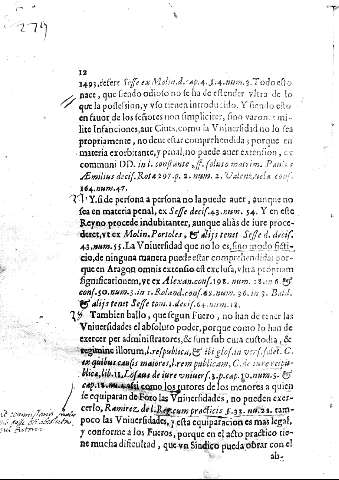 279
12
1493. refert Sesse ex Molin. d. cap. 4. §. 4. num. 3. Todo esto
nace, que siẽdo odioso no se ha de estender vltra de lo
que la possession, y vso tienen introducido. Y siendo esto
en fauor de los señores non simpliciter, sino varon. mi-
lite Infanciones, aut Ciuis, como la Vniuersidad no lo sea
propriamente, no deue estar comprehendida; porque en
materia exorbitante, y penal, no puede auer extension, ex
communi DD. in l. constante, ff. soluto matrim. Paul.
Æmilius decis. Rotæ 297. p. 2. num. 2. Valençuela cons.
164. num. 47.
Y si de persona a persona no la puede auer, aunque no
sea en materia penal, ex Sesse decis. 43. num. 54. Y en este
Reyno procede indubitanter, aunque aliàs de iure proce-
deret, vt ex Molin. Portoles, & alijs tenet Sesse d. decis.
43. num. 55. La Vniuersidad que no lo es, sino modo ficti-
cio, de ninguna manera puede estar comprehendida, por-
que en Aragon omnis extensio est exclusa, vltra propriam
significationem, vt ex Alexan. cons. 198. num. 18. in 6. &
cons. 50. num. 3. in 1. Roland. cons. 62. num. 36. in 3. Bald.
& alijs tenet Sesse tom. 1. decis. 64. num. 18.
Tambien hallo, que segun Fuero, no han de tener las
Vniuersidades el absoluto poder, porque como lo han de
exercer per administratores, & sunt sub cura custodia, &
regimine illorum, l. respublica, & ibi glossan vers. falet. C.
ex quibus causis maiores, l. rem publicam, C. de iure respu-
blicæ, lib. 11. Losæus de iure vniuers. 3. p. cap. 30. num. 5. &
cap. 12. num. assi como los tutores de los menores a quien
se equiparan de Foro las Vniuersidades, no pueden exer-
cerlo, Ramirez de l. Reg. cum practicis §. 33. nu. 21. tam-
poco las Vniuersidades, y esta equiparacion es mas legal,
y conforme a los Fueros, porque en el acto practico tie-
ne mucha dificultad, que vn Sindico pueda obrar con el
ab-